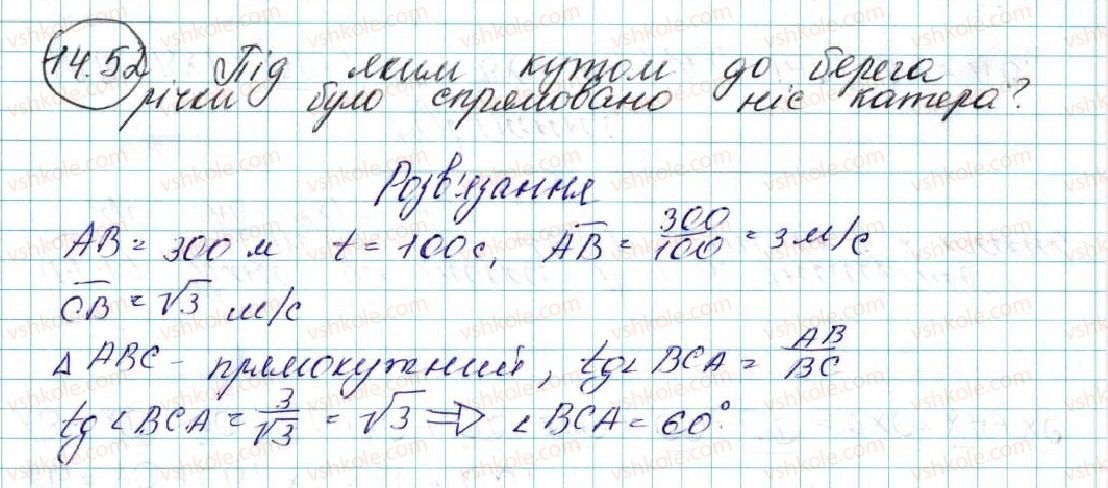 14.52. Під яким кутом до берега
річки було спрямовано ніс катера?
Розв'язання
AB = 300 м t = 100 с, A̅B̅ = 300/100 = 3 м/с
C̅B̅ = √3 м/с
△ ABC - прямокутний, tg∠BCA = AB/BC
tg∠BCA = 3/√3 = √3 ⇒ ∠BCA = 60°.